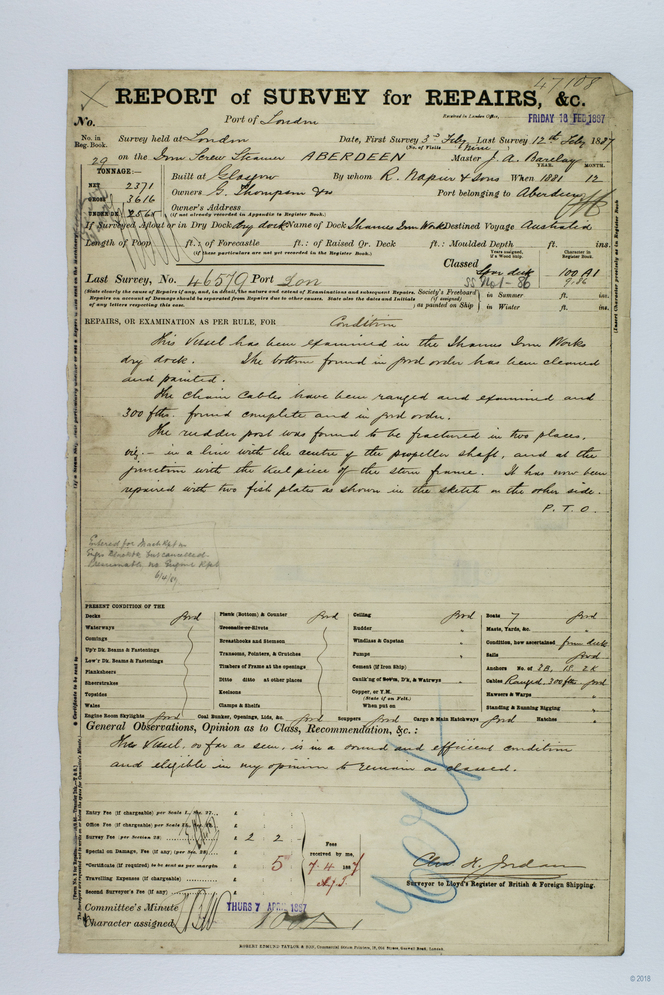 47108
REPORT of SURVEY for REPAIRS, &c.
No. Port of London Received in London Office, FRIDAY 18 FEB 1887
No. in Reg. Book. Survey held at London Date, First Survey 3rd Feby Last Survey 12th Feby 1887
(No. of Visits Nine)
29 on the Iron Screw Steamer ABERDEEN Master J. A. Barclay
TONNAGE:— YEAR. MONTH.
NET 2371 Built at Glasgow By whom R. Napier & Sons When 1881 12
GROSS 3616 Owners G. Thompson & Co Port belonging to Aberdeen
UNDER DK 2565 Owner's Address
(If not already recorded in Appendix to Register Book.)
If Surveyed Afloat or in Dry Dock dry dock Name of Dock Thames Iron Works Destined Voyage Australia
Length of Poop ft.: of Forecastle ft.: of Raised Qr. Deck ft.: Moulded Depth ft. ins.
(If these particulars are not yet recorded in the Register Book.)
Years assigned, if a Wood Ship. Character in Register Book.
Classed 100 A1
Last Survey, No. 46579 Port Lon SS No 1-86 9.86
(State clearly the cause of Repairs if any, and, in detail, the nature and extent of Examinations and subsequent Repairs. Repairs on account of Damage should be separated from Repairs due to other causes. State also the dates and Initials of any letters respecting this case.
Society's Freeboard (if assigned) as painted on Ship
in Summer ft. ins.
in Winter ft. ins.
REPAIRS, OR EXAMINATION AS PER RULE, FOR Condition
This Vessel has been examined in the Thames Iron Works
dry dock. The bottom found in good order has been cleaned
and painted.
The chain cables have been ranged and examined and
300 fths. found complete and in good order.
The rudder post was found to be fractured in two places,
viz:— in a line with the centre of the propeller shaft, and at the
junction with the keel piece of the stern frame. It has now been
repaired with two fish plates as shown in the sketch on the other side.
P. T. O.
6/4/87
PRESENT CONDITION OF THE
Decks good
Waterways
Comings
Up'r Dk. Beams & Fastenings
Low'r Dk. Beams & Fastenings
Planksheers
Sheerstrakes
Topsides
Wales
Plank (Bottom) & Counter good
Treenails or Rivets
Breasthooks and Stemson
Transoms, Pointers, & Crutches
Timbers of Frame at the openings
Ditto ditto at other places
Keelsons
Clamps & Shelfs
Ceiling good
Rudder "
Windlass & Capstan "
Pumps "
Cement (if Iron Ship) "
Caulk'g of Bot'm, D'k, & Watrwys "
Copper, or Y.M.
(State if on Felt.)
When put on
Boats 7 good
Masts, Yards, &c. "
Condition, how ascertained from deck
Sails good
Anchors No. of 3B, 1S, 2K
Cables Ranged, 300 fths good
Hawsers & Warps "
Standing & Running Rigging "
Engine Room Skylights good Coal Bunker, Openings, Lids, &c. good Scuppers good Cargo & Main Hatchways good Hatches "
General Observations, Opinion as to Class, Recommendation, &c. :
This Vessel, so far as seen, is in a sound and efficient condition
and eligible in my opinion to remain as classed.
Entry Fee (if chargeable) £
Office Fee (if chargeable) £
Survey Fee (per Section 28) £ 2 2
Special on Damage, Fee (if any) £
*Certificate (if required) to be sent as per margin 5
Travelling Expenses (if chargeable) £
Second Surveyor's Fee (if any) £
Fees received by me,
7.4.1887
Chas. H. Jordan
Surveyor to Lloyd's Register of British & Foreign Shipping.
Committee's Minute THURS 7 APRIL 1887
Character assigned 100A1
ROBERT EDMUND TAYLOR & SON
© 2018